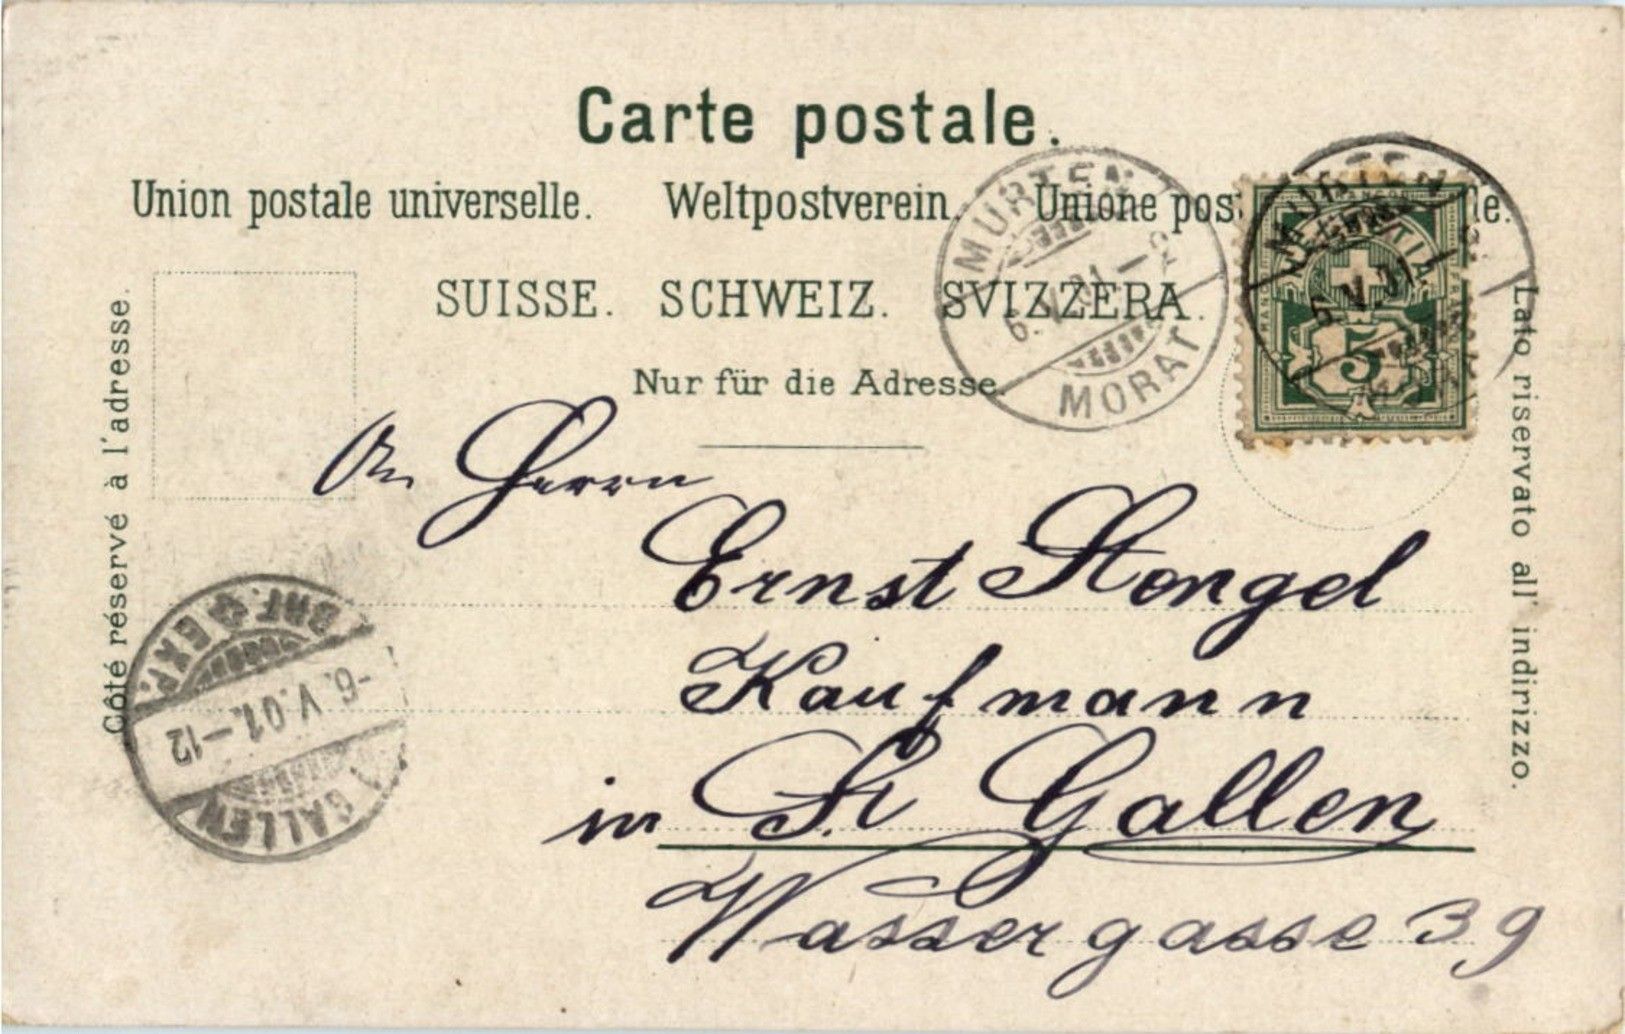 Carte postale.
Union postale universelle. Weltpostverein. Unione pos le.
SUISSE. SCHWEIZ. SVIZZERA.
Nur für die Adresse.
MURTEN
6.V.01-9
MORAT
MURTEN
HELVETIA
FRANCO
6.V.01-9
5
Côté réservé à l'adresse.
Lato riservato all' indirizzo.
An Herrn
Ernst Stengel
Kaufmann
in St Gallen
Wassergasse 39
ST. GALLEN
-6.V.01.-12
BHF. EXP.